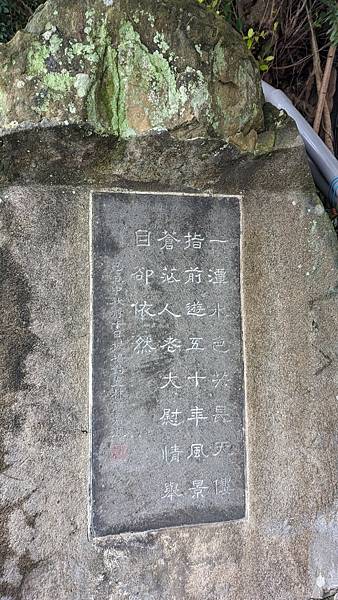 一潭水色共長天僂
指前遊五十年風景
蒼茫人老大慰情舉
目卻依然